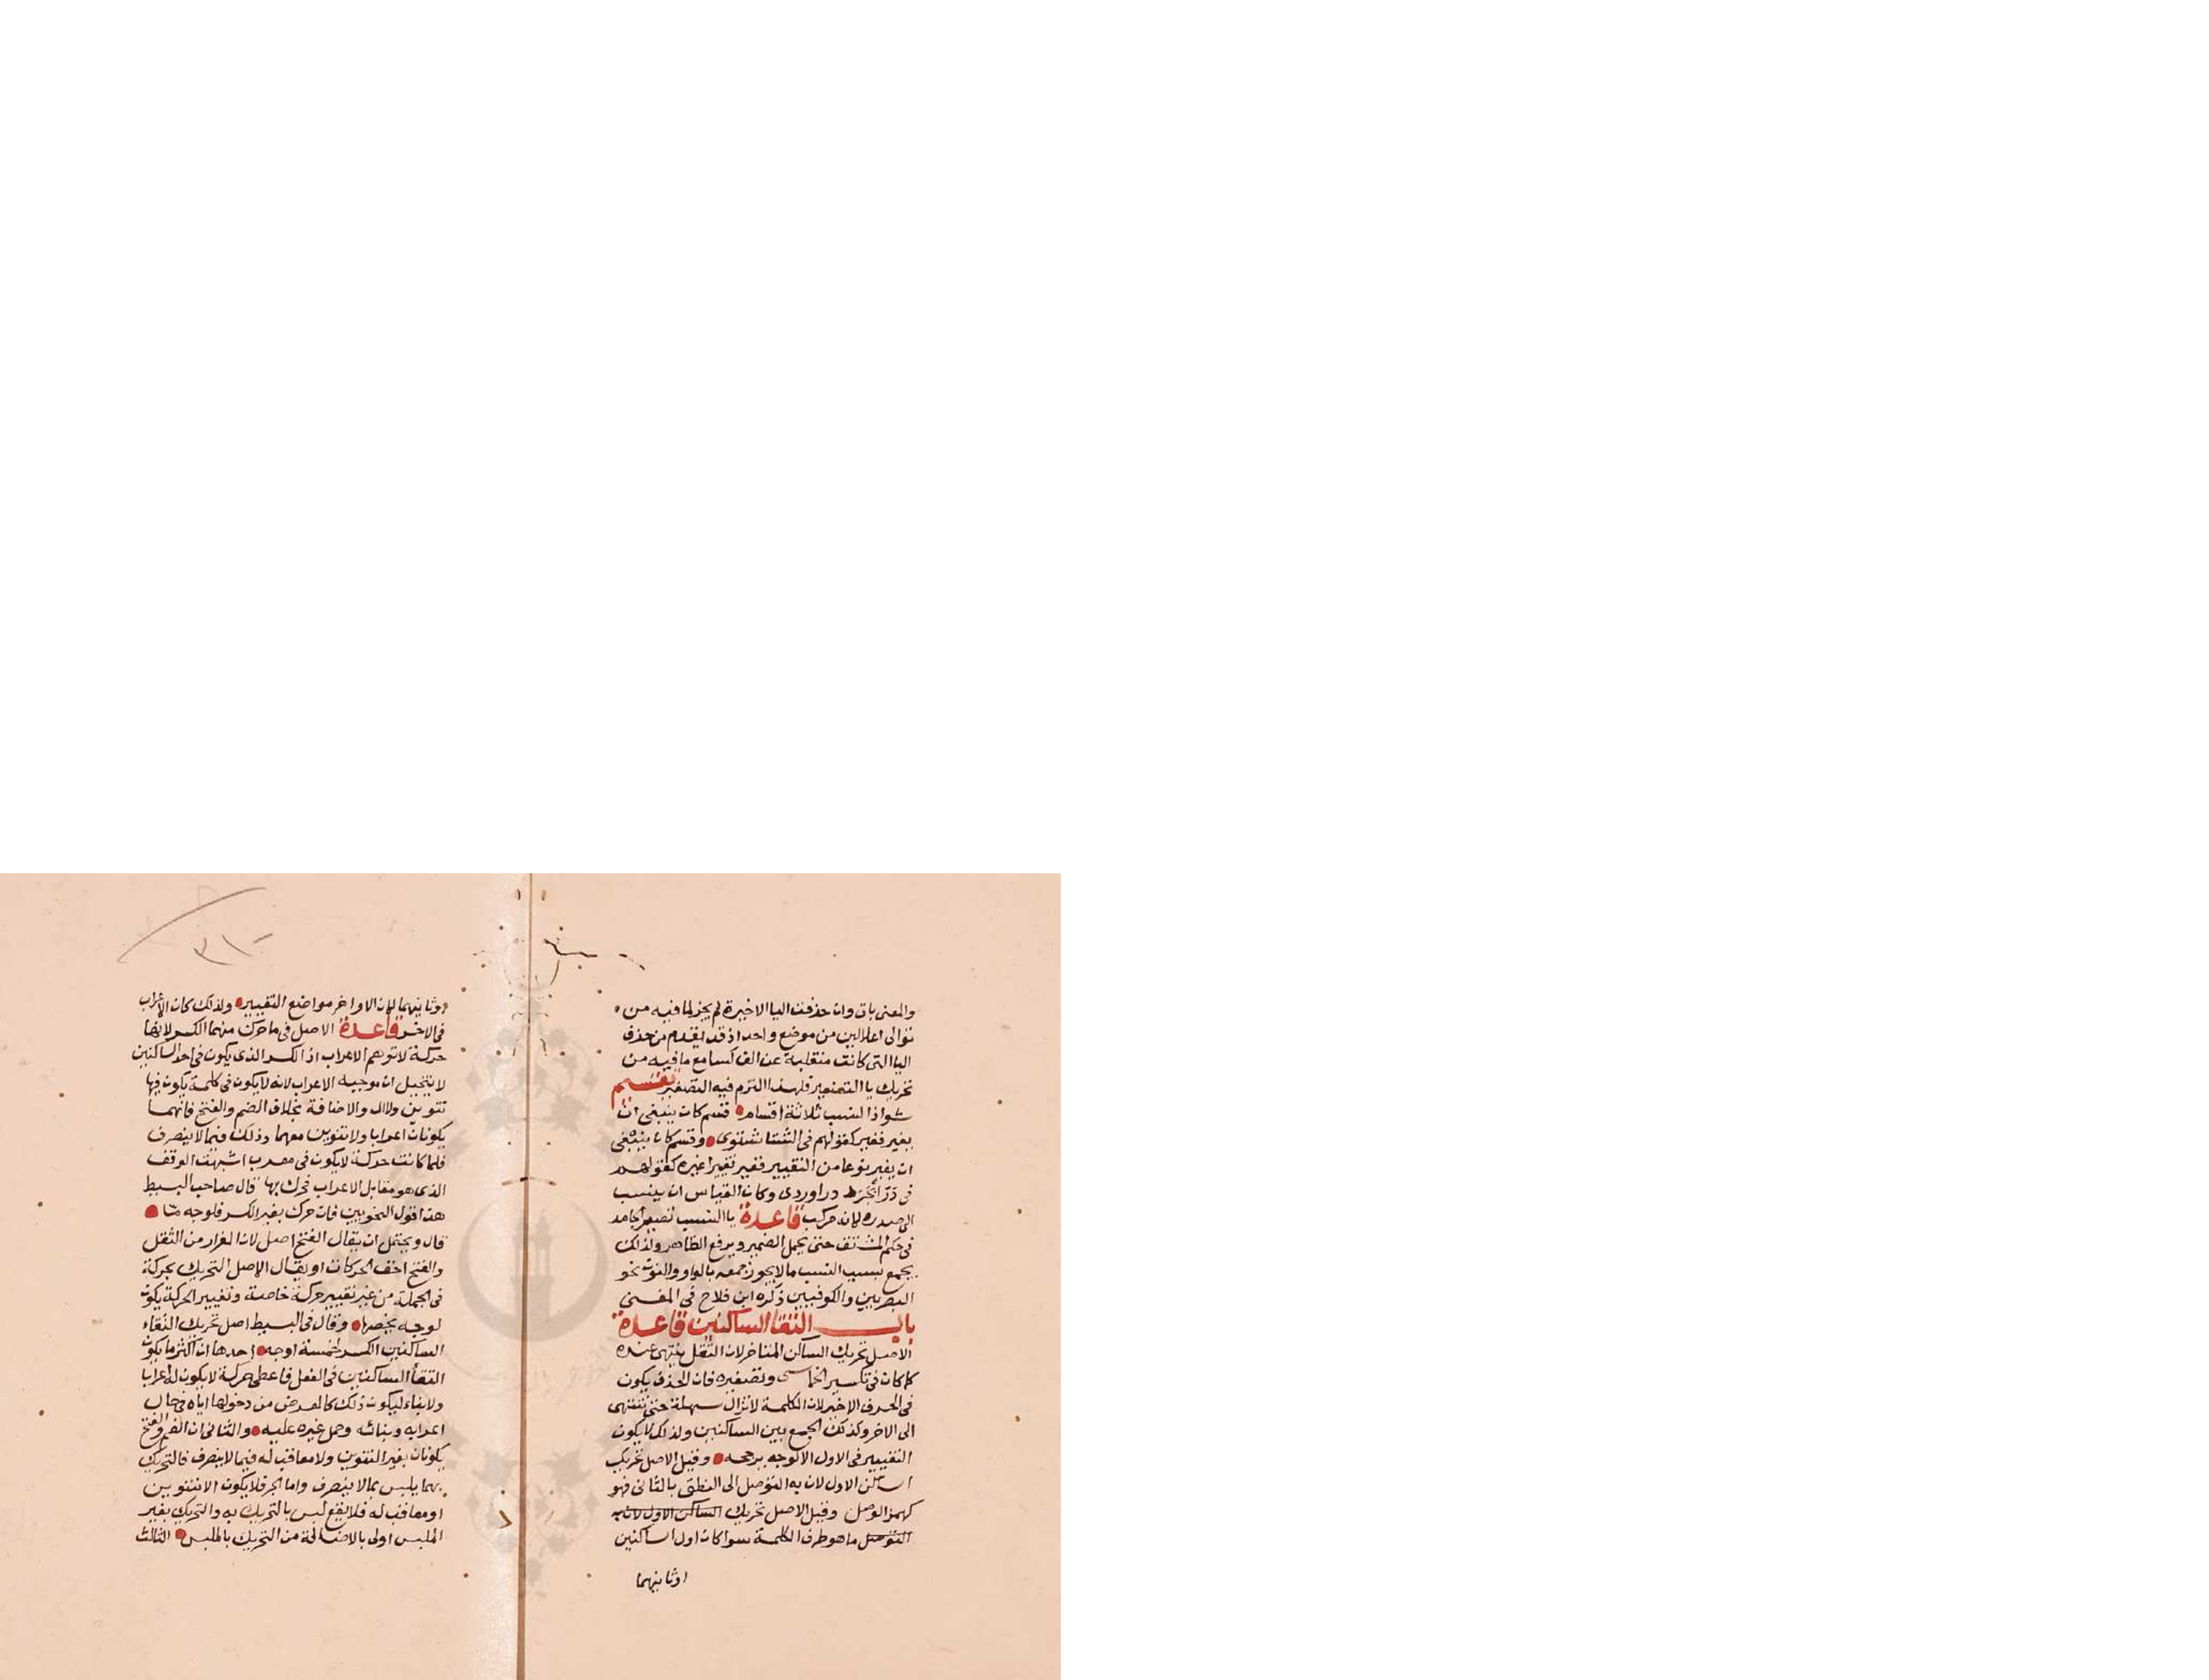 والمعنى باق وان حذفت اليا الاخيرة لم يجز لما فيه من
توالى اعلالين من موضع واحد اذ قد تقدم من حذف
اليا التى كانت منقلبة عن الف كسا مع ما فيه من
تحريك يا التصغير فلهذا التزم فيه التصغير تقسيم
شواذ النسب ثلاثة اقسام قسم كان ينبغى ان
يغير فغير كقولهم فى الشتا شتوى وقسم كان ينبغى
ان يغير نوعا من التغيير فغير تغييرا غيره كقولهم
فى درابجرد دراوردى وكان القياس ان ينسب
الى صدره لانه مركب قاعدة يا النسب تصير الجامد
فى حكم المشتق حتى يحمل الضمير ويرفع الظاهر ولذلك
يجمع بسبب النسب ما لا يجوز جمعه بالواو والنون نحو
البصريين والكوفيين ذكره ابن فلاح فى المغنى
باب التقا الساكنين قاعدة
الاصل تحريك الساكن المتاخر لان الثقل ينتهى عنده
كما كان فى تكسير الخماسى وتصغيره فان الحذف يكون
فى الحرف الاخير لان الكلمة لا تزال سهلة حتى تنتهى
الى الاخر وكذلك الجمع بين الساكنين ولذلك لا يكون
التغيير فى الاول الا لوجه يرجحه وقيل الاصل تحريك
الساكن الاول لان به التوصل الى النطق بالثانى فهو
كهمز الوصل وقيل الاصل تحريك الساكن الاول لان به
التوصل ما هو طرف الكلمة سوا كان اول الساكنين
او ثانيهما
٣١٠
او ثانيهما لان الاواخر مواضع التغيير ولذلك كان الاعراب
فى الاخر قاعدة الاصل فى ما حرك منهما الكسر لانها
حركة لا توهم الاعراب اذ الكسر الذى يكون فى احد الساكنين
لا يتخيل ان موجبه الاعراب لانه لا يكون فى كلمة يكون فيها
تنوين ولا ال والاضافة بخلاف الضم والفتح فانهما
يكونان اعرابا ولا تنوين معهما وذلك فيما لا ينصرف
فلما كانت حركة لا يكون فى معرب اشبهت الوقف
الذى هو مقابل الاعراب فحرك بها قال صاحب البسيط
هذا قول النحويين فان حرك بغير الكسر فلوجه ما
قال ويحتمل ان يقال الفتح اصل لان الفرار من الثقل
والفتح اخف الحركات او يقال الاصل التحريك بحركة
فى الجملة من غير تغيير حركة خاصة وتغيير الحركة يكون
لوجه يخصها وقال فى البسيط اصل تحريك التقاء
الساكنين الكسر لخمسة اوجه احدها ان اكثر ما يكون
التقأ الساكنين فى الفعل فاعطى حركة لا يكون له اعرابا
ولا بناء ليكون ذلك كالعوض من دخولها اياه فى حال
اعرابه وبنائه وحمل غيره عليه والثانى ان الضم والفتح
يكونان بغير التنوين ولا معاقب له فيما لا ينصرف فالتحريك
بهما يلبس بما لا ينصرف واما الجر فلا يكون الا بتنوين
او معاقب له فلا يقع لبس بالتحريك به والتحريك بغير
الملبس اولى بالاصالة من التحريك بالملبس الثالث